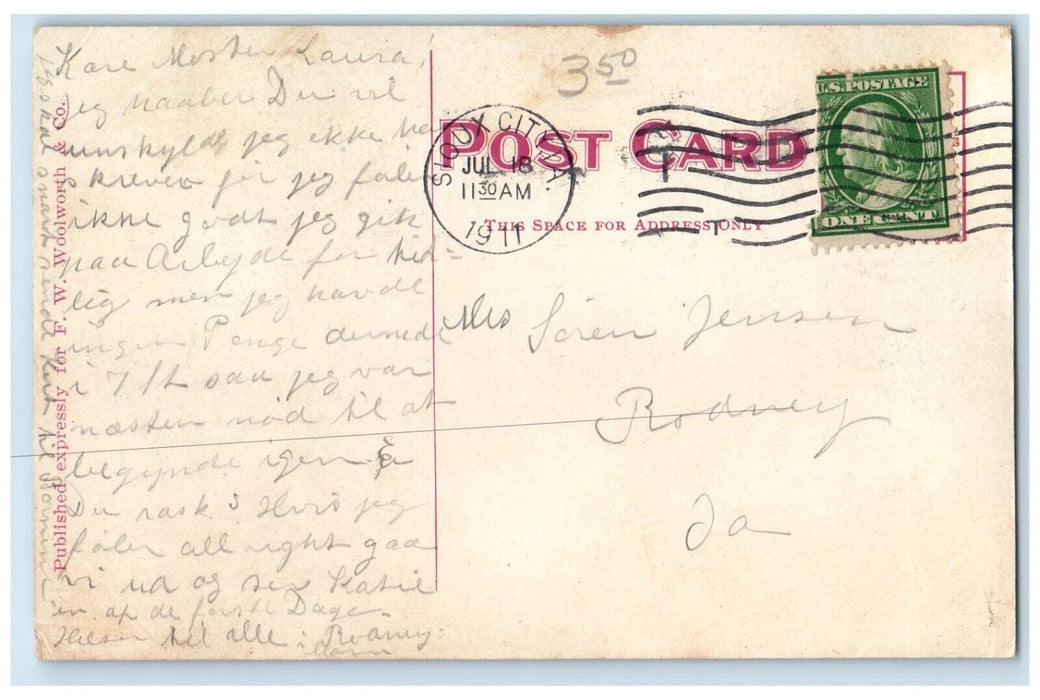 Kære Moster Laura!
jeg haaber Du vil
undskylde jeg ikke har
skreven før jeg føler
ikke godt jeg gik
paa Arbejde for tid-
lig men jeg havde
ingen Penge dernede
i 7 saa jeg var
næsten nød til at
begynde igen Er
Du rask? Hvis jeg
føler all right gaa
vi ud og ser Katie
en af de første Dage.
Hilsen til alle i Rodney.
Jeg skal snart sende Kort til
Published expressly for F. W. Woolworth & Co.
3 50
POST CARD
THIS SPACE FOR ADDRESS ONLY
SIOUX CITY, IA.
JUL 18
11 30 AM
1911
U.S. POSTAGE
ONE CENT
Mrs Sören Jensen
Rodney
Ia